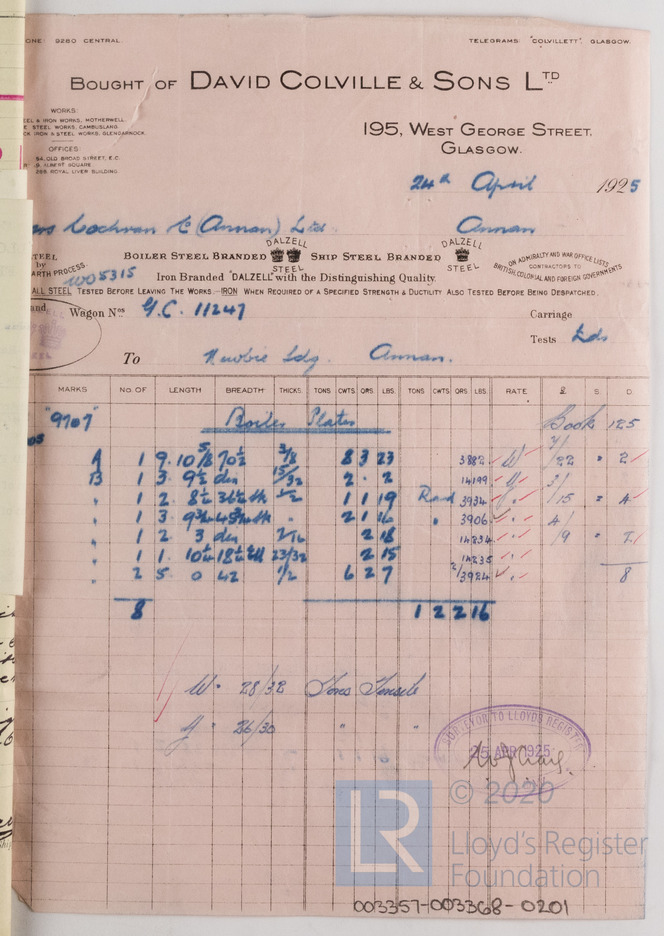 ONE: 9260 CENTRAL.
TELEGRAMS: "COLVILLETT". GLASGOW.
BOUGHT OF DAVID COLVILLE & SONS LTD
WORKS:
EEL & IRON WORKS, MOTHERWELL.
E STEEL WORKS, CAMBUSLANG
CK IRON & STEEL WORKS, GLENGARNOCK.
OFFICES:
54, OLD BROAD STREET, E.C.
9 ALBERT SQUARE
285 ROYAL LIVER BUILDING
195, WEST GEORGE STREET,
GLASGOW.
24th April 1925
Cochran & Co (Annan) Ltd Annan
DALZELL STEEL
DALZELL STEEL
STEEL by ARTH PROCESS.
BOILER STEEL BRANDED SHIP STEEL BRANDED
ON ADMIRALTY AND WAR OFFICE LISTS
CONTRACTORS TO
BRITISH, COLONIAL AND FOREIGN GOVERNMENTS
5315
Iron Branded "DALZELL" with the Distinguishing Quality.
ALL STEEL TESTED BEFORE LEAVING THE WORKS.—IRON WHEN REQUIRED OF A SPECIFIED STRENGTH & DUCTILITY ALSO TESTED BEFORE BEING DESPATCHED.
and Wagon Nos G.C. 11247
Carriage
Tests Lds
To Newbie Sdg. Annan.
MARKS No. OF LENGTH BREADTH THICKS. TONS CWTS QRS LBS. TONS CWTS QRS LBS. RATE £ S. D.
"9707" Boiler Plates Book 125
A 1 9.10 5/8 70½ 3/8 8 3 23 3882 W /22 2
B 1 3. 9½ dia 15/32 2 . 2 14199 3/
" 1 2. 8½ 36 ½ 1 1 19 3934 /15 4
" 1 3. 9 2 1 3906 4/
" 1 2. 3 dia 2 18 14234 /9
" 1 1. 10 18 23/32 2 15 14235
" 2 5. 0 42 1/2 6 2 7 2/3924 8
8 1 2 2 16
W. 28/32 Tons Tensile
Y. 26/30 " "
SURVEYOR TO LLOYDS REGISTER
25 APR 1925
LR
© 2020
Lloyd's Register
Foundation
003357-003368-0201